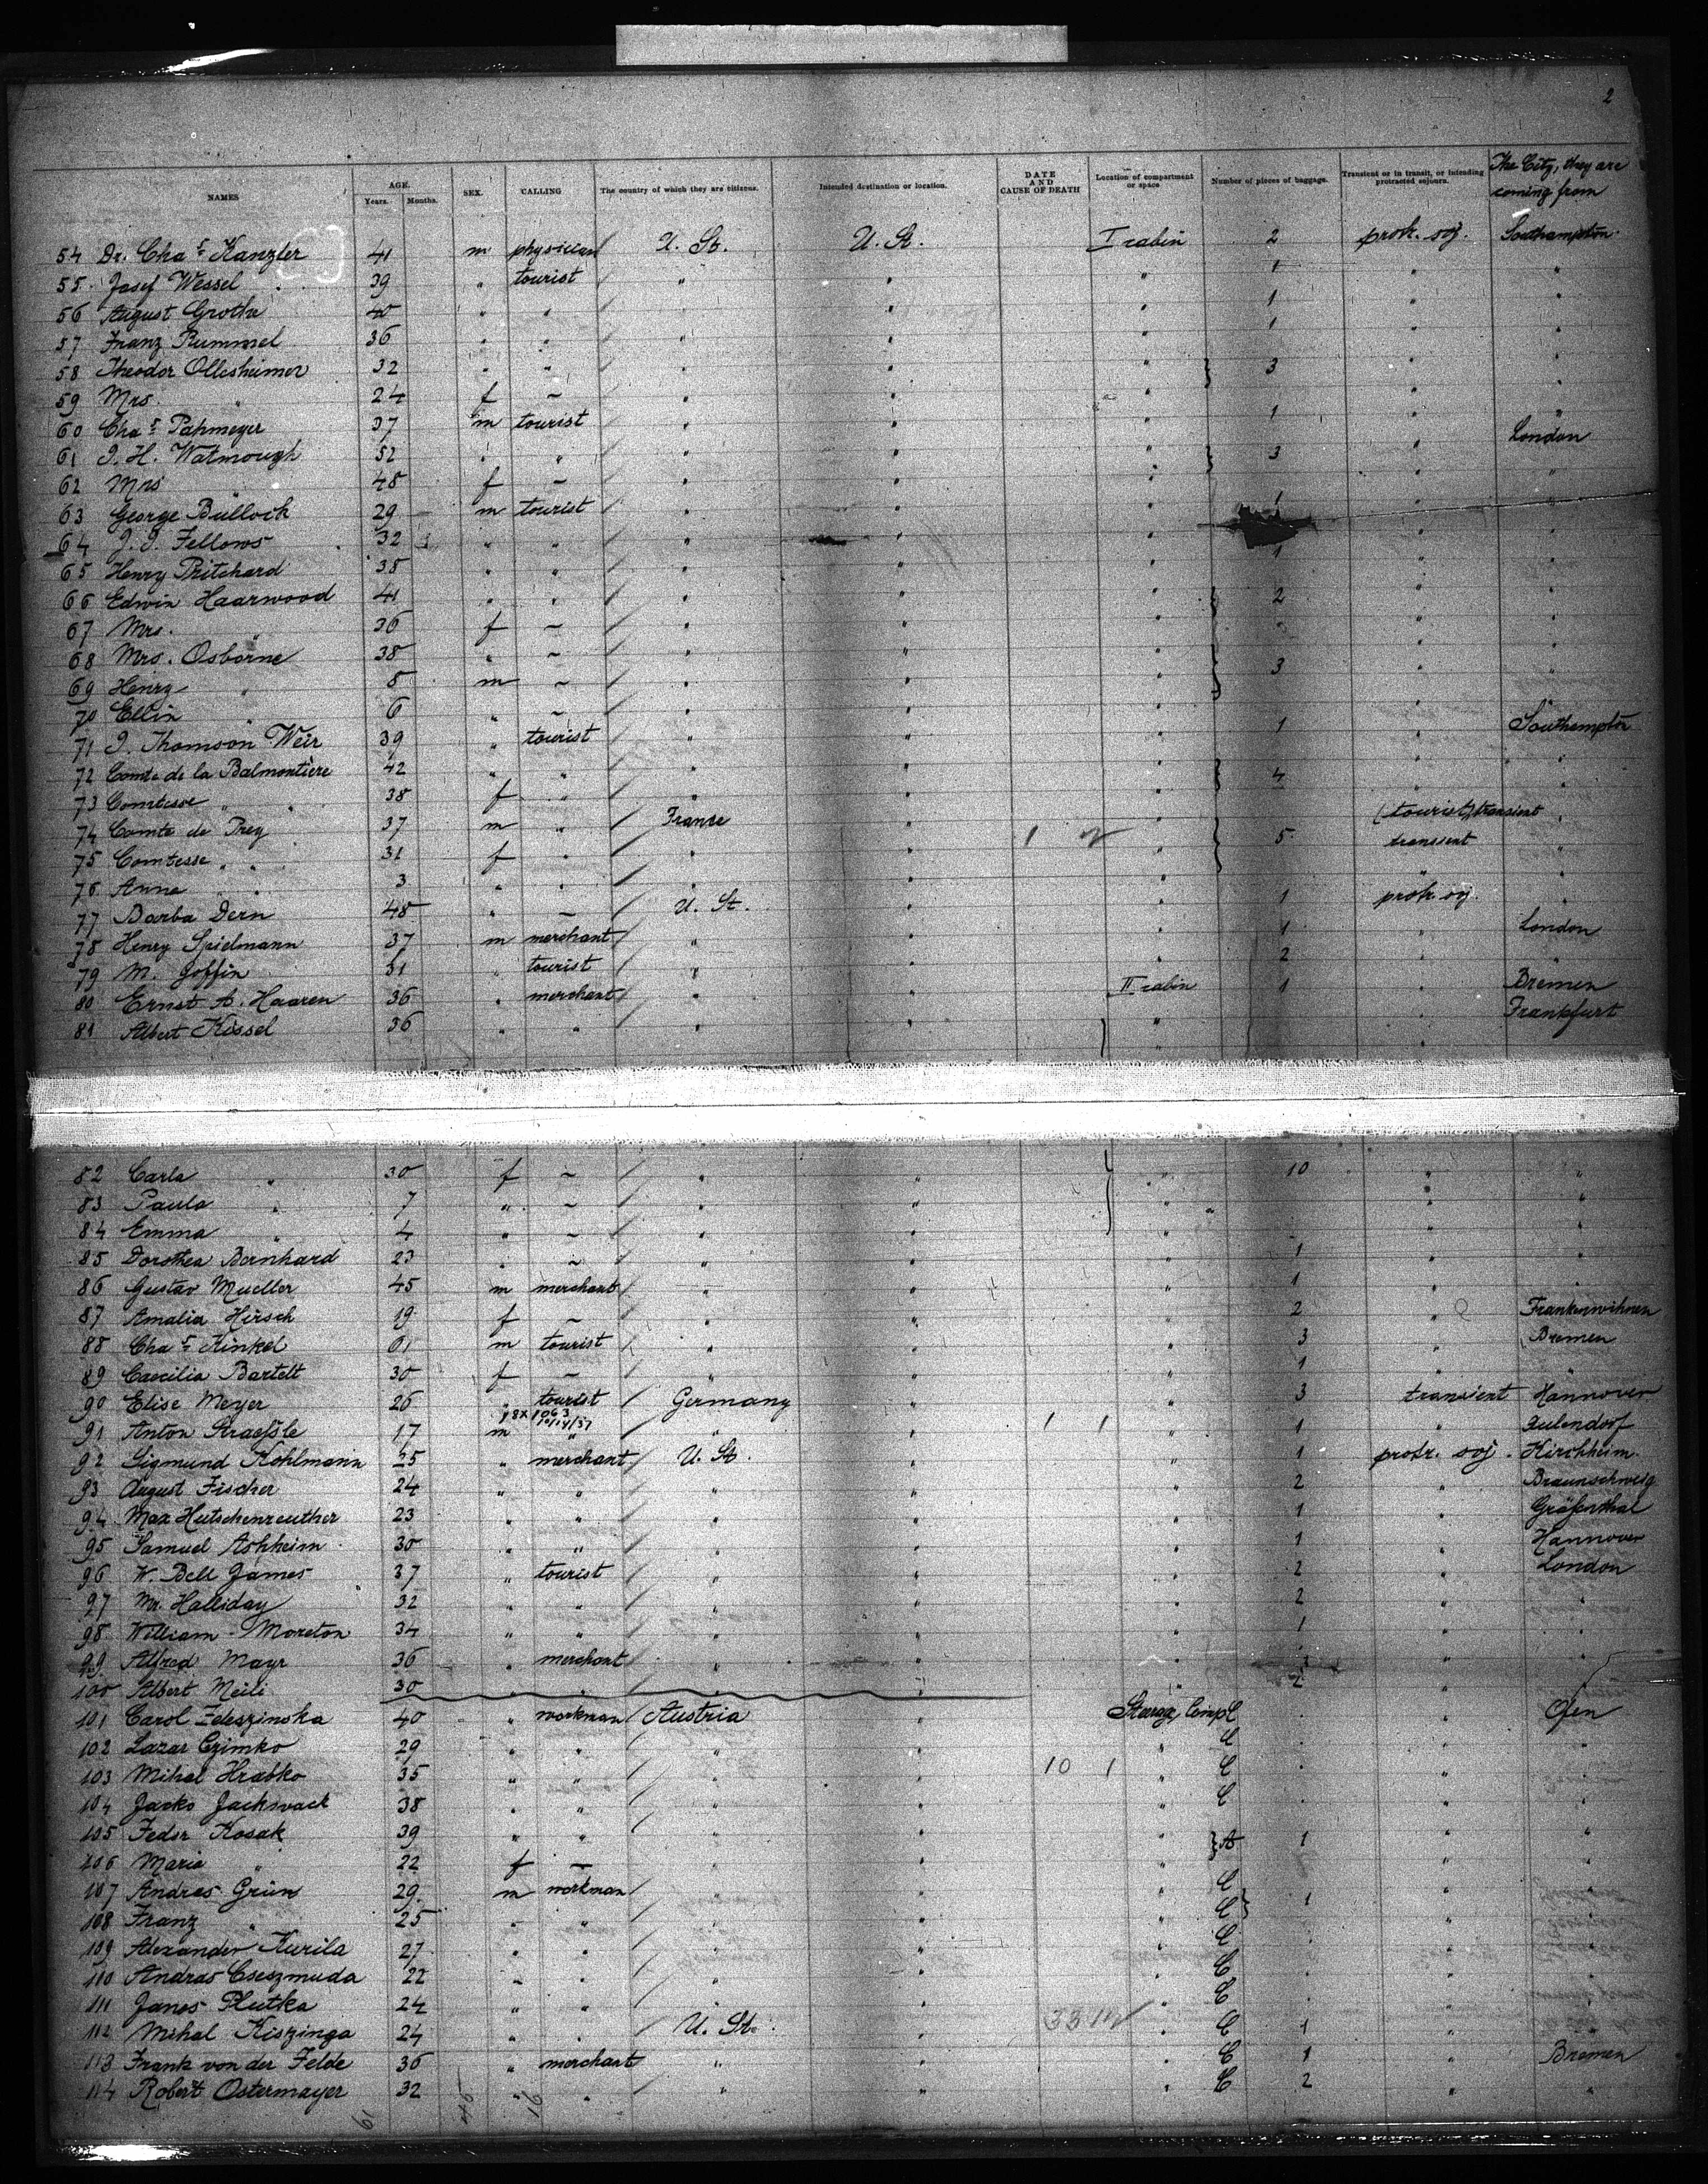 2
NAMES AGE. Years. Months. SEX. CALLING The country of which they are citizens. Intended destination or location. DATE AND CAUSE OF DEATH Location of compartment or space Number of pieces of baggage. Transient or in transit, or intending protracted sojourn. The City, they are coming from
54 Dr. Chas Kanzler 41 m physician U. St. U. St. I cabin 2 protr. soj. Southampton
55 Josef Wessel 39 " tourist / " " " 1 " "
56 August Grothe 40 " " / " " " 1 " "
57 Franz Rummel 36 " " / " " " 1 " "
58 Theodor Ollesheimer 32 " " / " " " } 3 " "
59 Mrs. " 24 f ~ / " " " " "
60 Chas Papmeyer 37 m tourist / " " " 1 " "
61 J. H. Watmough 52 " " / " " " } 3 " London
62 Mrs " 48 f ~ / " " " " "
63 George Bulloch 29 m tourist / " " " 1 " "
64 J. J. Fellows 32 " " / " " " " "
65 Henry Pritchard 38 " " / " " " 1 " "
66 Edwin Haarwood 41 " " / " " " } 2 " "
67 Mrs. " 36 f ~ / " " " " "
68 Mrs. Osborne 38 " ~ / " " " } 3 " "
69 Henry " 8 m ~ / " " " " "
70 Ellin " 6 " ~ / " " " " "
71 J. Thomson Weir 39 " tourist / " " " 1 " Southampton
72 Comte de la Balmontière 42 " " / " " " } 4 " "
73 Comtesse " 38 f " / " " " " "
74 Comte de Prey 37 m " / France " 1 " } 5 (tourist) transient "
75 Comtesse " " 31 f " / " " " transient "
76 Anna " " 3 " " / " " " " "
77 Barba Dern 48 " ~ / U. St. " " 1 protr. soj. "
78 Henry Spielmann 37 m merchant / " " " 1 " London
79 M. Joffin 31 " tourist / " " " 2 " "
80 Ernst A. Haaren 36 " merchant / " " II cabin 1 " Bremen
81 Albert Kissel 36 " " / " " " " Frankfurt
82 Carla " 30 f ~ / " " " 10 " "
83 Paula " 7 " ~ / " " " " "
84 Emma " 4 " ~ / " " " " "
85 Dorothea Bernhard 23 " ~ / " " " 1 " "
86 Gustav Mueller 45 m merchant / " " " 1 " "
87 Amalia Hirsch 19 f ~ / " " " 2 "
88 Chas Kinkel 61 m tourist / " " " 3 " Bremen
89 Caecilia Bartelt 30 f ~ / " " " 1 " "
90 Elise Meyer 26 " tourist / Germany " " 3 transient Hannover
91 Anton 17 m " / " " 1 1 " 1 "
92 Sigmund Kohlmann 25 " merchant / U. St. " " 1 protr. soj. Kirchheim
93 August Fischer 24 " " / " " " 2 " Braunschweig
94 Max Hutschenreuther 23 " " / " " " 1 " Gräfenthal
95 Samuel Ashheim 30 " " / " " " 1 " Hannover
96 W. Bell James 37 " tourist / " " " 2 " London
97 Mr. Halliday 32 " " / " " " 2 " "
98 William Moreton 34 " " / " " " 1 " "
99 Alfred Mayr 36 " merchant " " " " "
100 Albert Meili 30 " " / " " " 2 " "
101 Carol 40 " workman / Austria " Steerage, Comp C " Ofen
102 Lazar Czimko 29 " " / " " " C " "
103 Mihal Hrabko 35 " " / " " 10 1 " C " "
104 Jacko 38 " " / " " " C " "
105 Fedor Kosak 39 " " / " " " } A 1 " "
106 Maria " 22 f ~ " " " " "
107 Andras Grün 29 m workman / " " " C 1 " "
108 Franz " 25 " " / " " " C " "
109 Alexander Kurila 27 " " / " " " C " "
110 Andras Cseszmuda 22 " " / " " " C " "
111 Janos Plutka 24 " " / " " " C " "
112 Mihal Kiszinga 24 " " U. St. " " C 1 " "
113 Frank von der Felde 36 " merchant " " " C 1 " Bremen
114 Robert Ostermayer 32 " " / " " " C 2 " "